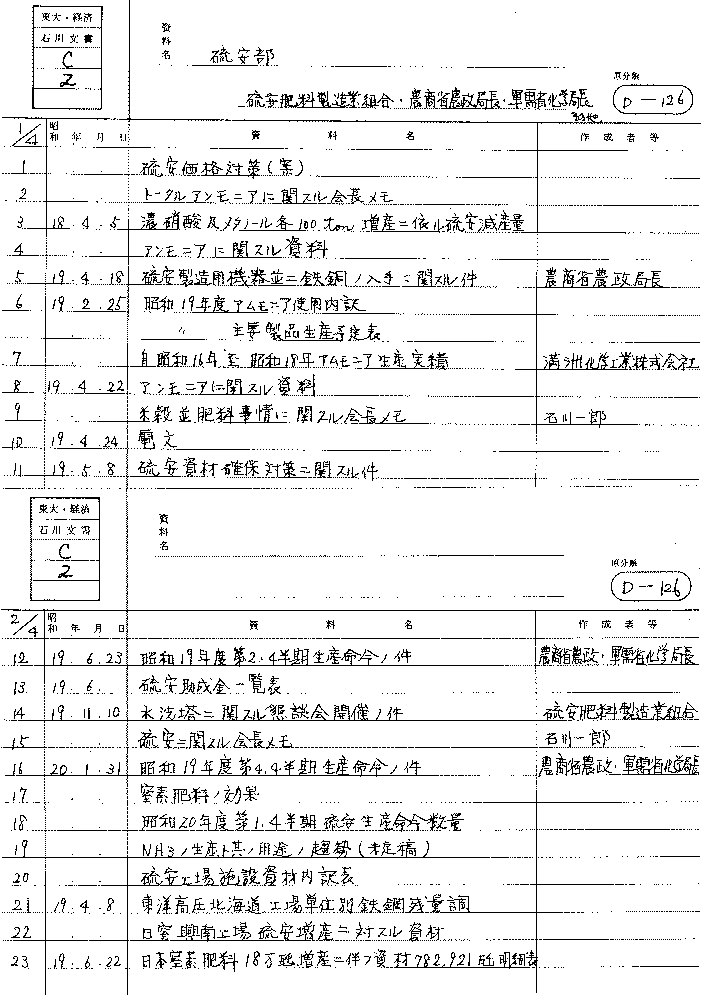 東大・経済
石川文書
C
2
資料名 硫安部
硫安肥料製造業組合・農商省農政局長・軍需省化学局長
其他
原分類
D-126
1/4 昭和 年 月 日 資料名 作成者等
1 硫安価格対策(案)
2 トータルアンモニアに関スル会長メモ
3 18.4.5 濃硝酸及メタノール各100ton 増産ニ依ル硫安減産量
4 アンモニアに関スル資料
5 19.4.18 硫安製造用機器並ニ鉄鋼ノ入手ニ関スル件 農商省農政局長
6 19.2.25 昭和19年度アムモニア使用内訳
〃 主要製品生産予定表
7 自昭和16年至昭和18年アムモニア生産実積 満洲化学工業株式会社
8 19.4.22 アンモニアに関スル資料
9 米穀並肥料事情に関スル会長メモ 石川一郎
10 19.4.24 電文
11 19.5.8 硫安資材確保対策ニ関スル件
東大・経済
石川文書
C
2
資料名
原分類
D-126
2/4 昭和 年 月 日 資料名 作成者等
12 19.6.23 昭和19年度第2.4半期生産命令ノ件 農商省農政・軍需省化学局長
13 19.6. 硫安助成金一覧表
14 19.11.10 水洗塔ニ関スル懇談会開催ノ件 硫安肥料製造業組合
15 硫安ニ関スル会長メモ 石川一郎
16 20.1.31 昭和19年度第4.4半期生産命令ノ件 農商省農政・軍需省化学局長
17 窒素肥料ノ効果
18 昭和20年度第1.4半期硫安生産命令数量
19 NH3ノ生産ト其ノ用途ノ趨勢(未定稿)
20 硫安工場施設資材内訳表
21 19.4.8 東洋高圧北海道工場単位別鉄鋼残量調
22 日窒興南工場硫安増産ニ対スル資材
23 19.6.22 日本窒素肥料18万瓲増産ニ伴フ資材782,921瓲明細表